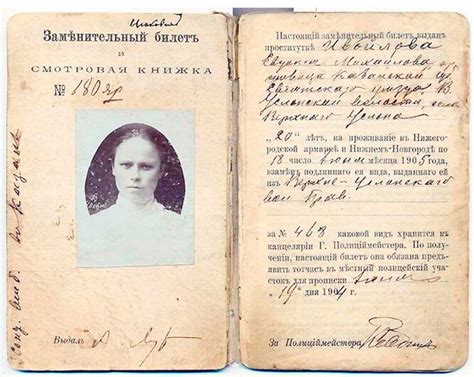 Замѣнительный билетъ
и
СМОТРОВАЯ КНИЖКА
№ 180 яр
Выдалъ
Настоящій замѣнительный билетъ выданъ
проституткѣ Ивойлова
Евгенія Михайлова
Казанской губ.
Свіяжскаго уѣзда В.
Услонской волости, села
Верхняго Услона
"20" лѣтъ, на проживаніе въ Нижего-
родской армаркѣ и Нижнемъ-Новгородѣ по
18 число Іюня мѣсяца 1905 года,
взамѣнъ подлиннаго ея вида, выданнаго ей
изъ Верхне-Услонскаго
вол. Прав.
за № 468 каковой видъ хранится въ
канцеляріи Г. Полиціймейстера. По полу-
ченіи, настоящій билетъ она обязана предъя-
вить тотчасъ въ мѣстный полицейскій участ-
окъ для прописки Іюня
"19" дня 1904 г.
За Полиціймейстера